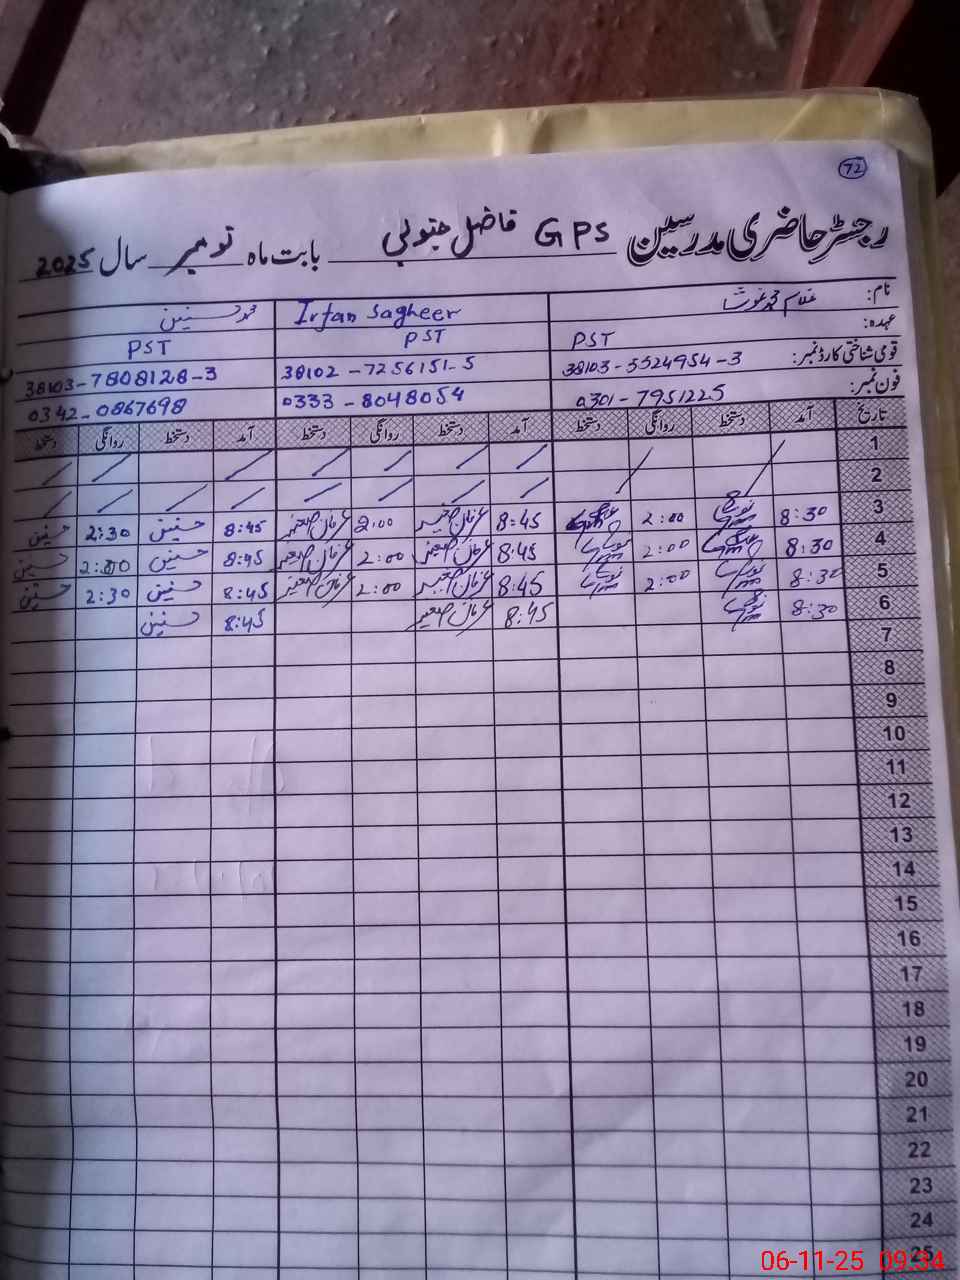 72
رجسٹر حاضری مدرسین GPS فاضل جنوبی بابت ماہ نومبر سال 2025
نام: غلام محمد غوشا Irfan Sagheer محمد حسنین
عہدہ: PST PST PST
قومی شناختی کارڈ نمبر: 38103-5524954-3 38102-7256151-5 38103-7808128-3
فون نمبر: 0301-7951225 0333-8048054 0342-0867698
تاریخ آمد دستخط روانگی دستخط آمد دستخط روانگی دستخط آمد دستخط روانگی دستخط
1
2
3 8:30 2:00 8:45 2:00 8:45 حسنین 2:30 حسنین
4 8:30 2:00 8:45 2:00 8:45 حسنین حسنین
5 8:30 2:00 8:45 2:00 8:45 حسنین 2:30 حسنین
6 8:30 8:45 8:45 حسنین
7
8
9
10
11
12
13
14
15
16
17
18
19
20
21
22
23
24
25
06-11-25 09:34